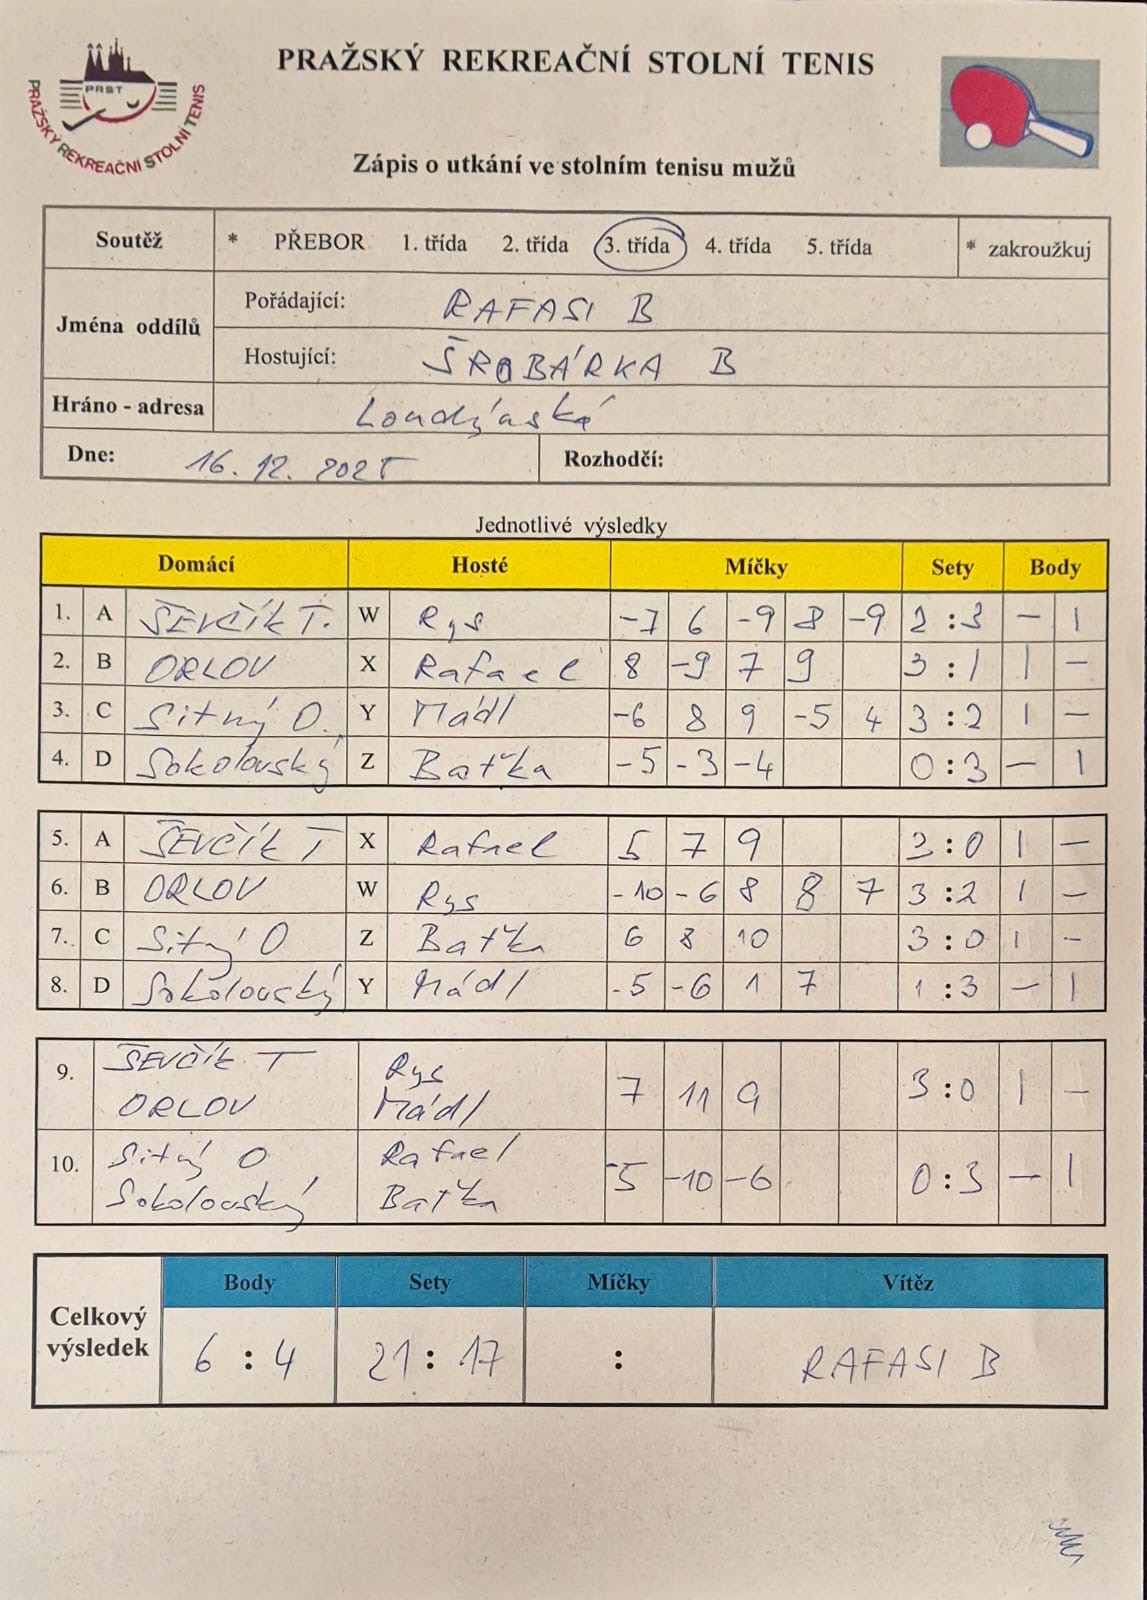 PRAŽSKÝ REKREAČNÍ STOLNÍ TENIS
PRST
PRAŽSKÝ REKREAČNÍ STOLNÍ TENIS
Zápis o utkání ve stolním tenisu mužů
Soutěž * PŘEBOR 1. třída 2. třída 3. třída 4. třída 5. třída * zakroužkuj
Jména oddílů
Pořádající: RAFASI B
Hostující: ŠROBÁRKA B
Hráno - adresa Londýnská
Dne: 16. 12. 2025 Rozhodčí:
Jednotlivé výsledky
Domácí Hosté Míčky Sety Body
1. A ŠEVČÍK T. W Rys -7 6 -9 8 -9 2 : 3 - 1
2. B ORLOV X Rafael 8 -9 7 9 3 : 1 1 -
3. C Sitný O. Y Mádl -6 8 9 -5 4 3 : 2 1 -
4. D Sokolovský Z Baťka -5 -3 -4 0 : 3 - 1
5. A ŠEVČÍK T X Rafael 5 7 9 3 : 0 1 -
6. B ORLOV W Rys -10 -6 8 8 7 3 : 2 1 -
7. C Sitný O Z Baťka 6 8 10 3 : 0 1 -
8. D Sokolovský Y Mádl -5 -6 1 7 1 : 3 - 1
9. ŠEVČÍK T Rys
ORLOV Mádl 7 11 9 3 : 0 1 -
10. Sitný O Rafael
Sokolovský Baťka -5 -10 -6 0 : 3 - 1
Celkový výsledek
Body Sety Míčky Vítěz
6 : 4 21 : 17 : RAFASI B